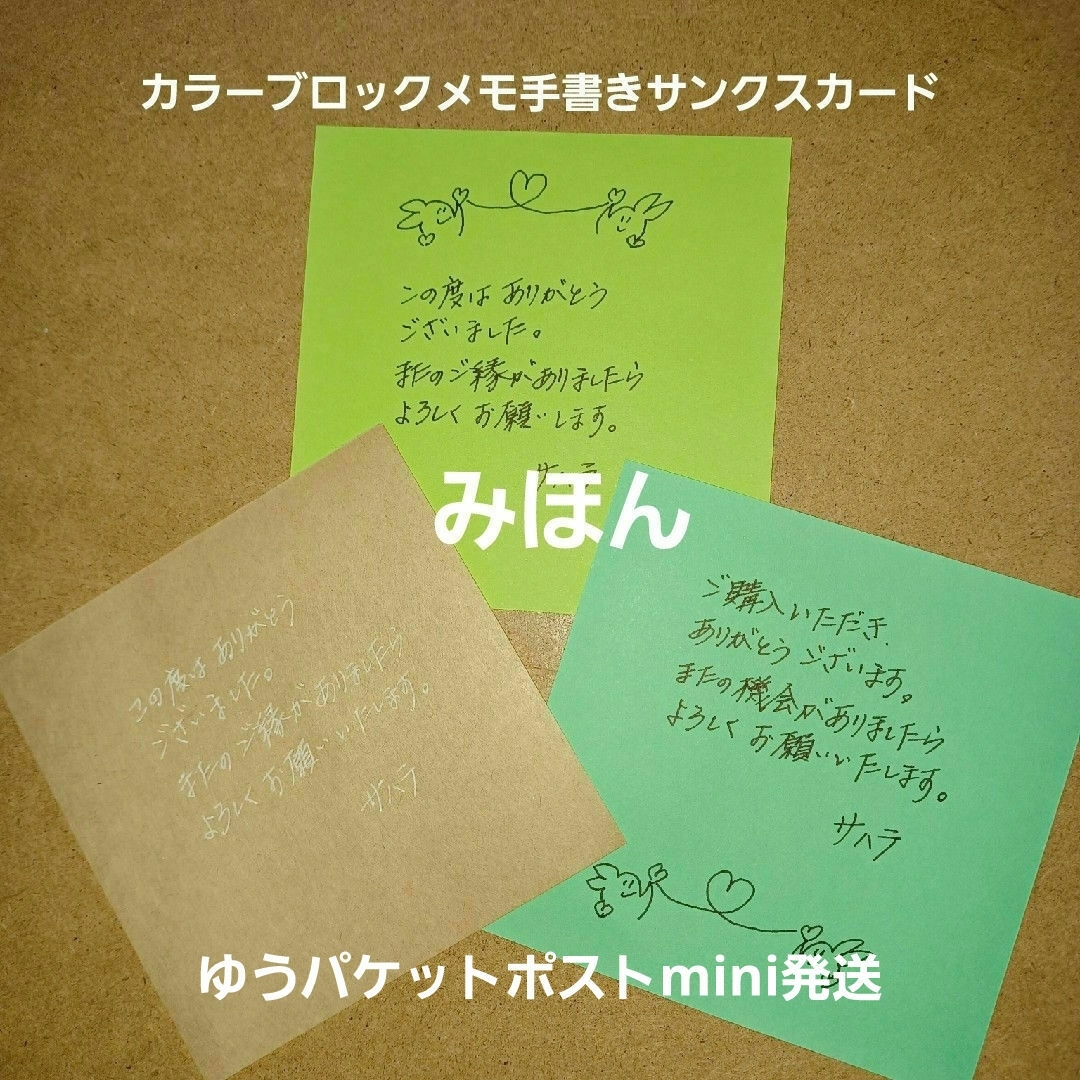 カラーブロックメモ手書きサンクスカード
この度は ありがとう
ございました。
またのご縁がありましたら
よろしく お願いします。
サハラ
みほん
この度は ありがとう
ございました。
またの ご縁がありましたら
よろしく お願いいたします。
サハラ
ご購入いただき
ありがとう ございます。
またの機会がありましたら
よろしく お願いいたします。
サハラ
ゆうパケットポストmini発送